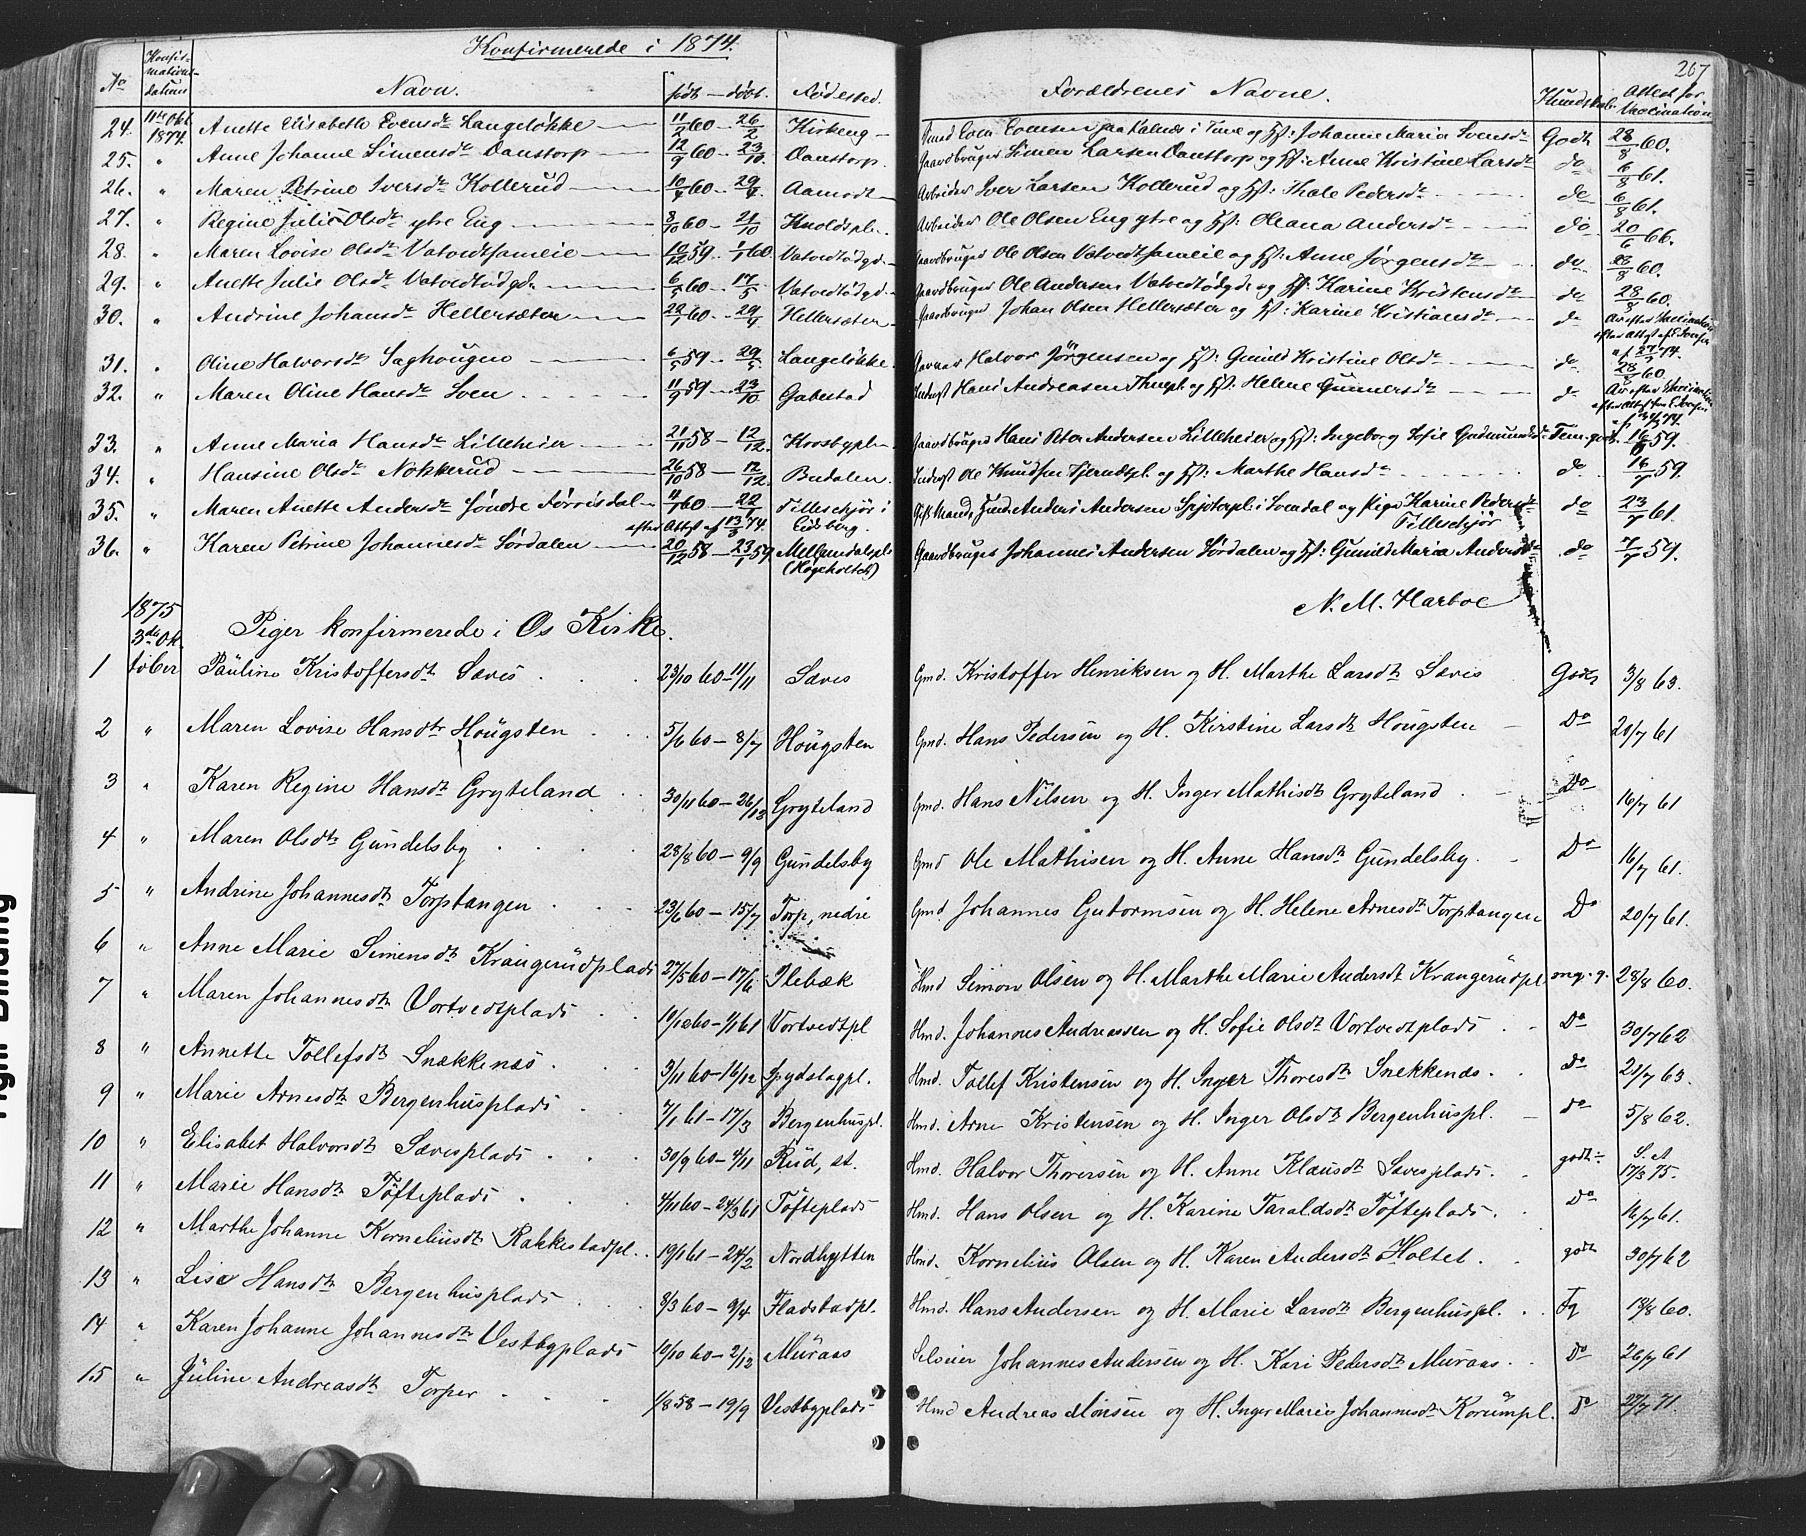 Konfirmerede i 1874.
267
No Konfirmationsdatum Navn. født — døbt. Fødested. Forældrenes Navne. Kundskab. Attest for Vaccination
24. 11te Okt. 1874. Anette Elisabeth Evensdr Langeløkke 11/2 60 — 26/2 Kirkeng Even Evensen paa Kalnæs i Tune og Hst: Johanne Maria Svensdr Godt 28/8 60.
25. " Anne Johanne Simensdr Danstorp 12/9 60 — 23/10 Danstorp. Gaardbruger Simen Larsen Danstorp og Hst: Anne Kristine Larsdr do 6/8 61.
26. " Maren Petrine Iversdr Kollerud 10/4 60 — 29/4 Aamodt Arbeider Iver Larsen Kollerud og Hst: Thale Pedersdr do 6/8 61.
27. " Regine Julie Olsdr ytre Eng 8/10 60 — 21/10 Knoldspl. Arbeider Ole Olsen Eng ytre og Hst: Oleana Andersdr do 20/6 66.
28. " Maren Lovise Olsdr Vatvedtsameie 10/12 59 — 1/1 60. Vatvedtødgd. Gaardbruger Ole Olsen Vatvedtsameie og Hst: Anne Jørgensdr do 23/8 60.
29. " Anette Julie Olsdr Vatvedtødgd. 17/5 Vatvedtødgd. Gaardbruger Ole Andersen Vatvedtødgde og Hst: Karine Kristensdr do 28/8 60.
30. " Andrine Johansdr Hellersæter 60 — 29/4 Hellersæter Gaardbruger Johan Olsen Hellersæter og Hst: Karine Kristiansdr do
31. " Oline Halvorsdr Saghougen 6/5 59 — 29/5 Langeløkke Halvor Jørgensen og Hst: Gunild Kristine Olsdr do 28/8 60
32. " Maren Oline Hansdr Sven 11/9 59 — 23/10 Gabestad Inderst Hans Andreasen og Hst: Helene Gunnersdr do
33. " Anne Maria Hansdr Lilleheier 21/11 58 — 12/12. Krosbypl. Gaardbruger Hans Peter Andersen Lilleheier og Hst: Ingeborg Sofie Gudmundsdr Tem. godt. 59.
34. " Hansine Olsdr Nokkerud 26/10 58 — 12/12. Budalen. Inderst Ole Knudsen og Hst: Marthe Hansd do 16/7 59.
35. " Maren Anette Andersdr Søndre Torrisdal 4/1 60 — 22/1 Tilleschjør i Eidsberg. Anders Andersen i Svendal og Pige Karine Pedersdr Tilleschjør do 23/7 61.
efter Attest af 13/5 74.
36. " Karen Petrine Johannesdr Sørdalen 20/12 58 — 23/1 59 Mellemdalspl. (Høgeholtet) Gaardbruger Johannes Andersen Sørdalen og Hst: Gunild Maria Andersdr do 59.
N. M. Harboe
1875 3die Oktober
Piger konfirmerede i Os Kirke.
1 Pauline Kristoffersdt Sæves 23/10 60 — 11/11 Sæves Gmd. Kristoffer Henriksen og H. Marthe Larsdt Sæves Godt 3/8 63.
2 " Maren Lovise Hansdtr Hougsten 5/6 60 — 8/7 Hougsten Gmd. Hans Pedersen og H. Kirstine Larsdt Hougsten Do 20/7 61
3 " Karen Regine Hansdt Gryteland 30/11 60 — 26/12 Gryteland Gmd. Hans Nilsen og H. Inger Mathisdt Gryteland Do 16/7 61
4 " Maren Olsdt Gundelsby 28/8 60 — 9/9 Gundelsby Gmd Ole Mathisen og H. Anne Hansdt Gundelsby Do 16/7 61.
5 " Andrine Johannesdt Torptangen 23/6 60 — 15/7 Torp, nedre Gmd Johannes Gutormsen og H. Helene Arnesdt Torptangen Do 20/7 61.
6 " Anne Marie Simensdt Krangerudplads 27/5 60 — 17/6 Ilebæk Hmd Simon Olsen og H. Marthe Marie Andersdt Krangerudpl mg. g. 28/8 60.
7 " Maren Johannesdt Vortvedtplads 10/12 60 — 1/1 61 Vortvedtpl Hmd. Johannes Andreassen og H. Sofie Olsdt Vortvedtplads Do 30/7 62
8 " Annette Tollefsdt Snækkenæs 3/11 60 — 16/12 Spydslogpl. Hmd. Tollef Kristensen og H. Inger Thoresdt Snekkenæs Do 20/7 63.
9 " Marie Arnesdt Bergenhusplads 7/1 61 — 17/3 Bergenhuspl. Hmd. Arne Kristensen og H. Inger Olsdt Bergenhuspl. Do 5/8 62.
10 " Elisabet Halvorsdt Sævesplads 30/9 60 — 4/11 Rud, st. Hmd. Halvor Thorersen og H. Anne Klausdt Sævesplads. godt S. A. 17/3 75.
11 " Marie Hansdt Tøfteplads 4/11 60 — 24/3 61 Tøfteplads Hmd. Hans Olsen og H. Karine Taraldsdt Tøfteplads. Do 16/7 61.
12 " Marthe Johanne Korneliusdt Rakkestadpl. 19/1 61 — 24/2 Nordhytten Hmd. Kornelius Olsen og H. Karen Andersdt Holtet. godt 30/7 62
13 " Lise Hansdt Bergenhusplads 8/3 60 — 9/4 Fladstadpl. Hmd. Hans Andersen og H. Marie Larsdt Bergenhuspl. Tg 13/8 60.
14 " Karen Johanne Johannesdt Vestbyplads 10/10 60 — 2/12 Muraas Selveier Johannes Andersen og H. Kari Pedersdt Muraas Do 26/7 61
15 " Juline Andreasdt Torper 1/8 58 — 19/9 Vestbyplads Hmd Andreas Monsen og H. Inger Marie Johannesdt Korumpl. Do 27/7 71.